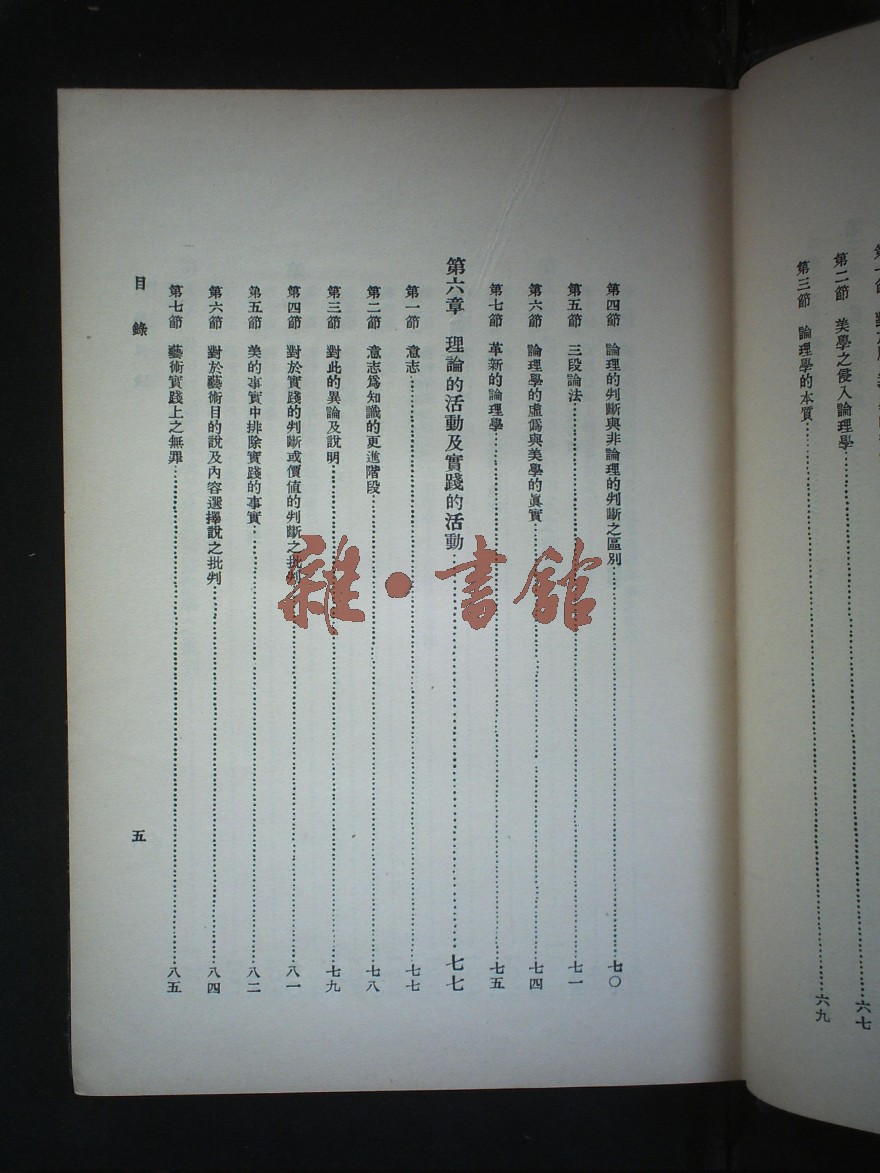 第二節 美學之侵入論理學……六七
第三節 論理學的本質……六九
第四節 論理的判斷與非論理的判斷之區別……七〇
第五節 三段論法……七一
第六節 論理學的虛僞與美學的眞實……七四
第七節 革新的論理學……七五
第六章 理論的活動及實踐的活動……七七
第一節 意志……七七
第二節 意志爲知識的更進階段……七八
第三節 對此的異論及說明……七九
第四節 對於實踐的判斷或價値的判斷之批判……八一
第五節 美的事實中排除實踐的事實……八二
第六節 對於藝術目的說及內容選擇說之批判……八四
第七節 藝術實踐上之無罪……八五
目錄
五
雜·書館